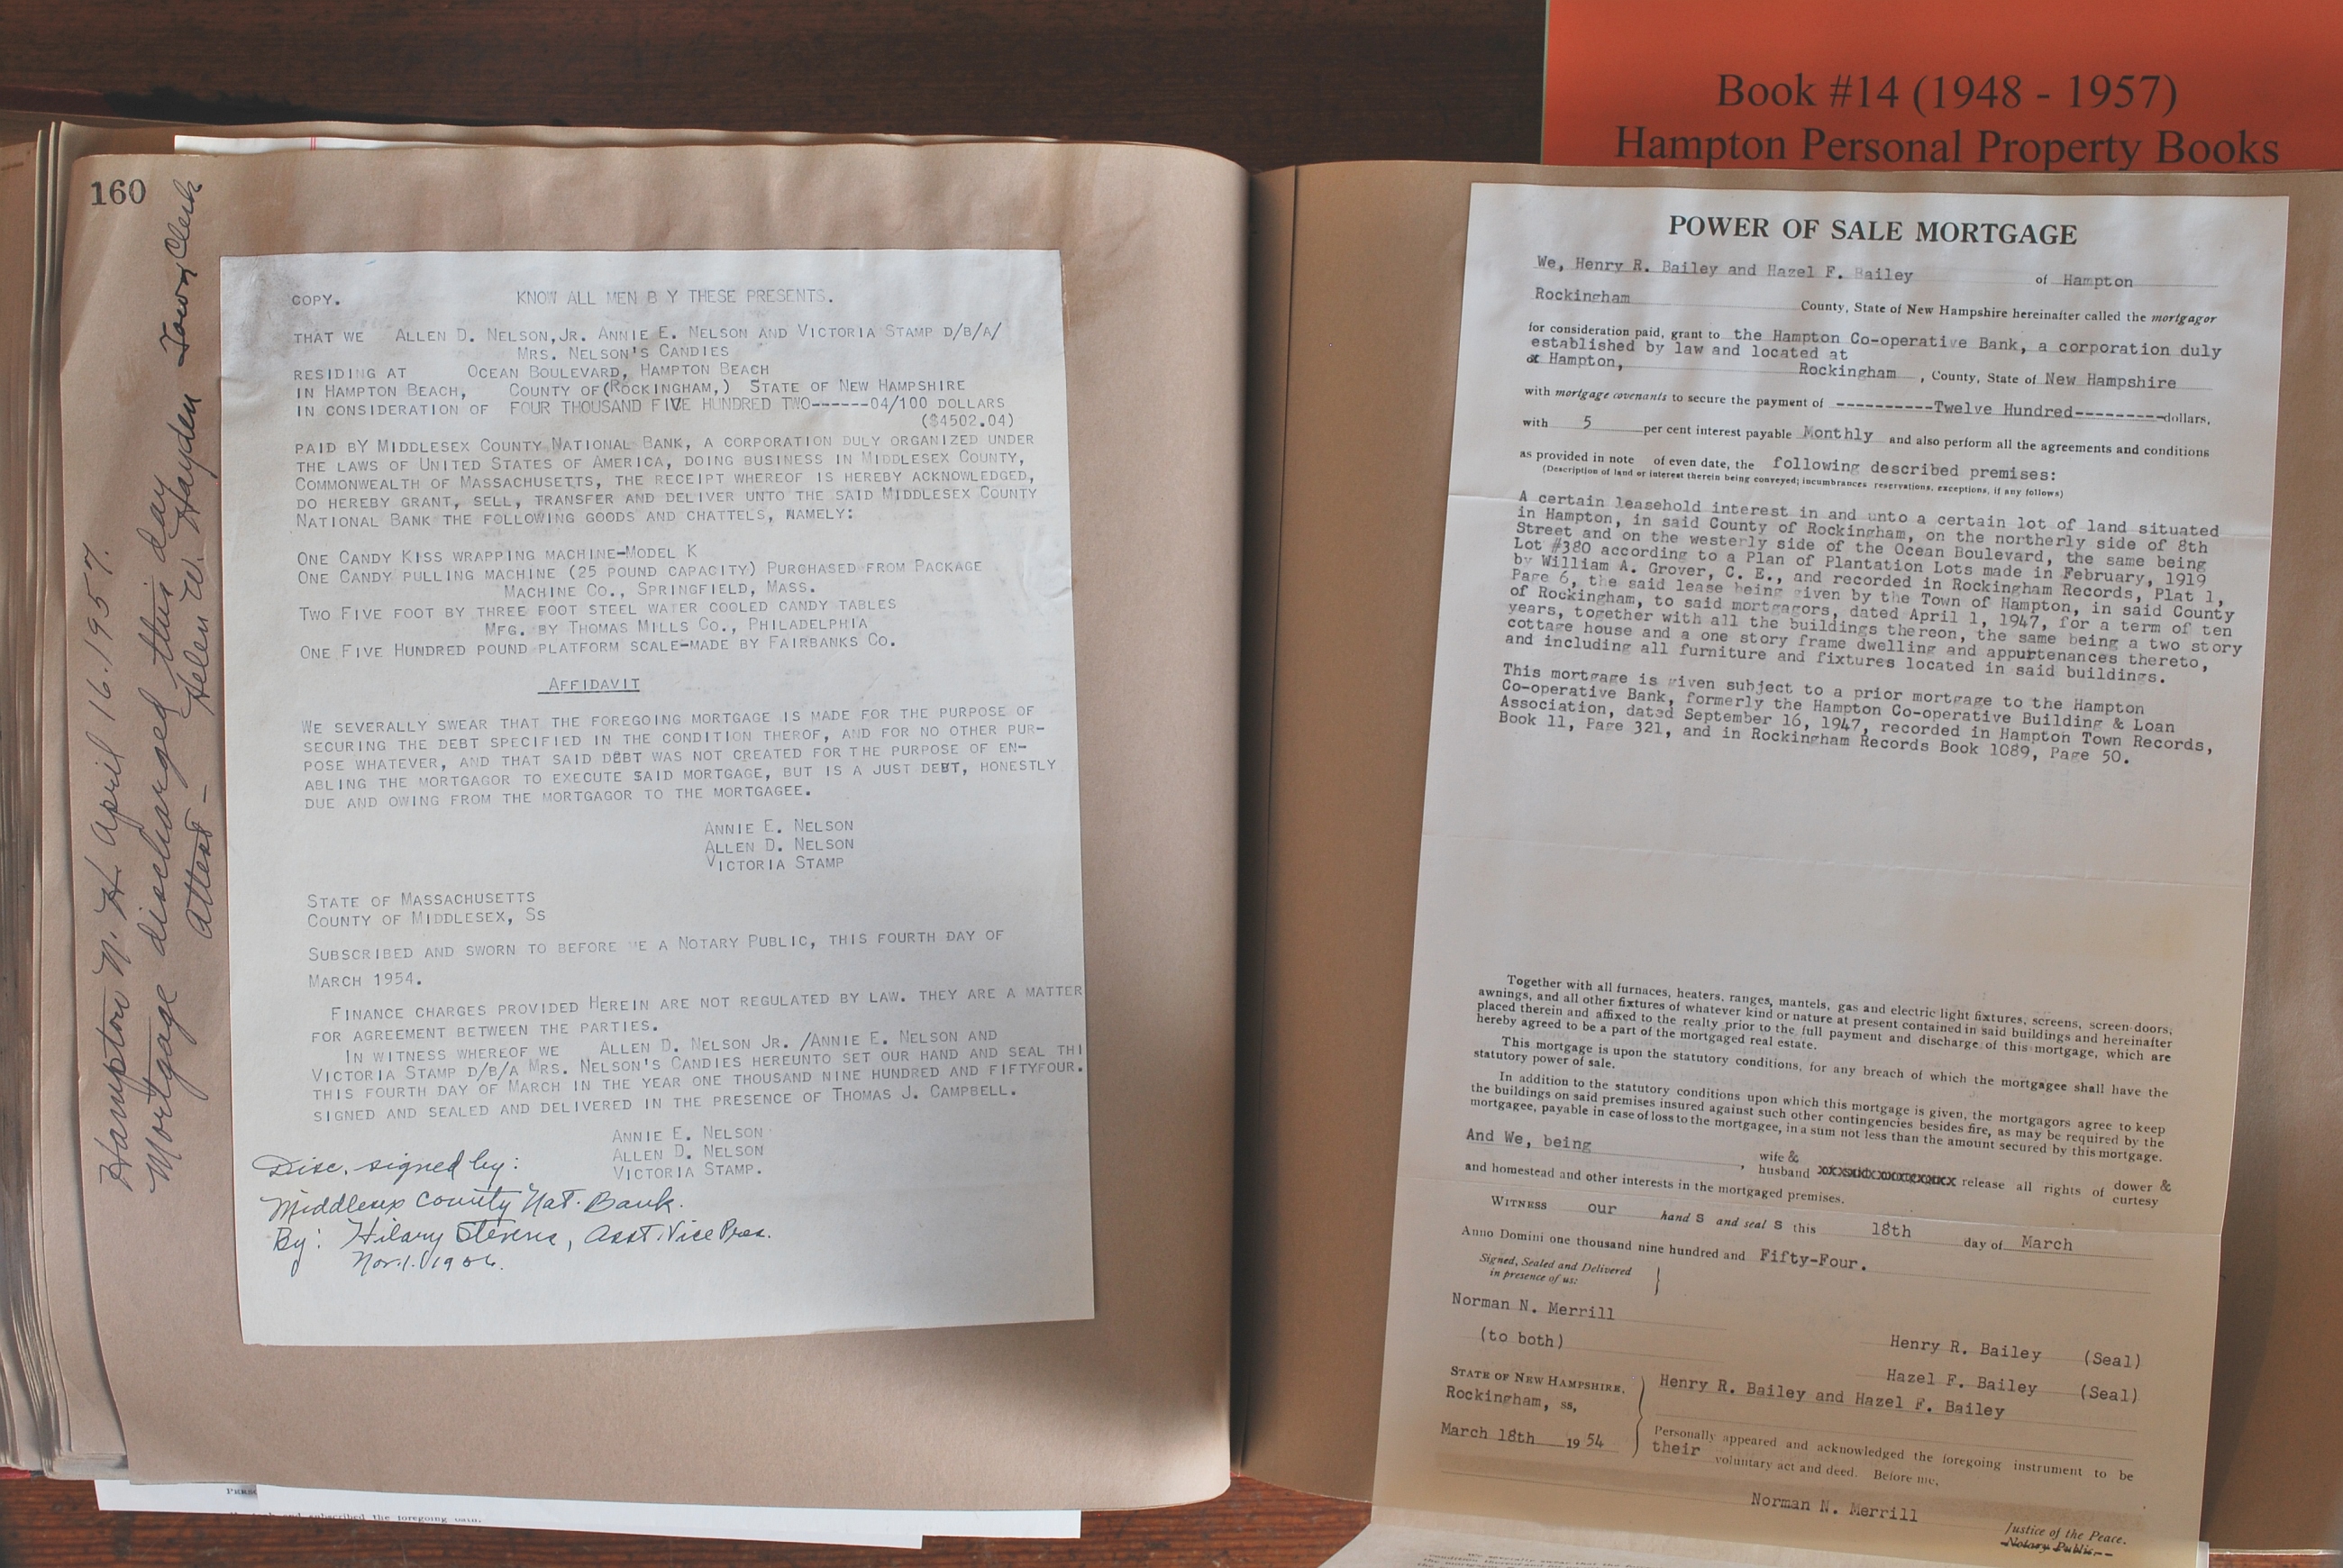 Book #14 (1948 - 1957)
Hampton Personal Property Books
160
Hampton N. H. April 16. 1957.
Mortgage discharged this day
Attest - Helen W. Hayden Town Clerk
COPY. KNOW ALL MEN B Y THESE PRESENTS.
THAT WE ALLEN D. NELSON,JR. ANNIE E. NELSON AND VICTORIA STAMP D/B/A/
MRS. NELSON'S CANDIES
RESIDING AT OCEAN BOULEVARD, HAMPTON BEACH
IN HAMPTON BEACH, COUNTY OF(ROCKINGHAM,) STATE OF NEW HAMPSHIRE
IN CONSIDERATION OF FOUR THOUSAND FIVE HUNDRED TWO------04/100 DOLLARS
($4502.04)
PAID BY MIDDLESEX COUNTY NATIONAL BANK, A CORPORATION DULY ORGANIZED UNDER
THE LAWS OF UNITED STATES OF AMERICA, DOING BUSINESS IN MIDDLESEX COUNTY,
COMMONWEALTH OF MASSACHUSETTS, THE RECEIPT WHEREOF IS HEREBY ACKNOWLEDGED,
DO HEREBY GRANT, SELL, TRANSFER AND DELIVER UNTO THE SAID MIDDLESEX COUNTY
NATIONAL BANK THE FOLLOWING GOODS AND CHATTELS, NAMELY:
ONE CANDY KISS WRAPPING MACHINE-MODEL K
ONE CANDY PULLING MACHINE (25 POUND CAPACITY) PURCHASED FROM PACKAGE
MACHINE CO., SPRINGFIELD, MASS.
TWO FIVE FOOT BY THREE FOOT STEEL WATER COOLED CANDY TABLES
MFG. BY THOMAS MILLS CO., PHILADELPHIA
ONE FIVE HUNDRED POUND PLATFORM SCALE-MADE BY FAIRBANKS CO.
AFFIDAVIT
WE SEVERALLY SWEAR THAT THE FOREGOING MORTGAGE IS MADE FOR THE PURPOSE OF
SECURING THE DEBT SPECIFIED IN THE CONDITION THEROF, AND FOR NO OTHER PUR-
POSE WHATEVER, AND THAT SAID DEBT WAS NOT CREATED FOR THE PURPOSE OF EN-
ABLING THE MORTGAGOR TO EXECUTE SAID MORTGAGE, BUT IS A JUST DEBT, HONESTLY
DUE AND OWING FROM THE MORTGAGOR TO THE MORTGAGEE.
ANNIE E. NELSON
ALLEN D. NELSON
VICTORIA STAMP
STATE OF MASSACHUSETTS
COUNTY OF MIDDLESEX, SS
SUBSCRIBED AND SWORN TO BEFORE ME A NOTARY PUBLIC, THIS FOURTH DAY OF
MARCH 1954.
FINANCE CHARGES PROVIDED HEREIN ARE NOT REGULATED BY LAW. THEY ARE A MATTER
FOR AGREEMENT BETWEEN THE PARTIES.
IN WITNESS WHEREOF WE ALLEN D. NELSON JR. /ANNIE E. NELSON AND
VICTORIA STAMP D/B/A MRS. NELSON'S CANDIES HEREUNTO SET OUR HAND AND SEAL THI
THIS FOURTH DAY OF MARCH IN THE YEAR ONE THOUSAND NINE HUNDRED AND FIFTYFOUR.
SIGNED AND SEALED AND DELIVERED IN THE PRESENCE OF THOMAS J. CAMPBELL.
ANNIE E. NELSON
ALLEN D. NELSON
VICTORIA STAMP.
Disc. signed by:
Middlesex County Nat. Bank.
By: Hilary Stevens, Asst. Vice Pres.
Nov. 1. 1956.
POWER OF SALE MORTGAGE
We, Henry R. Bailey and Hazel F. Bailey of Hampton
Rockingham County, State of New Hampshire hereinafter called the mortgagor
for consideration paid, grant to the Hampton Co-operative Bank, a corporation duly
established by law and located at
Hampton, Rockingham , County, State of New Hampshire
with mortgage covenants to secure the payment of ----------Twelve Hundred---------dollars,
with 5 per cent interest payable Monthly and also perform all the agreements and conditions
as provided in note of even date, the following described premises:
(Description of land or interest therein being conveyed; incumbrances reservations, exceptions, if any follows)
A certain leasehold interest in and unto a certain lot of land situated
in Hampton, in said County of Rockingham, on the northerly side of 8th
Street and on the westerly side of the Ocean Boulevard, the same being
Lot #380 according to a Plan of Plantation Lots made in February, 1919
by William A. Grover, C. E., and recorded in Rockingham Records, Plat 1,
Page 6, the said lease being given by the Town of Hampton, in said County
of Rockingham, to said mortgagors, dated April 1, 1947, for a term of ten
years, together with all the buildings thereon, the same being a two story
cottage house and a one story frame dwelling and appurtenances thereto,
and including all furniture and fixtures located in said buildings.
This mortgage is given subject to a prior mortgage to the Hampton
Co-operative Bank, formerly the Hampton Co-operative Building & Loan
Association, dated September 16, 1947, recorded in Hampton Town Records,
Book 11, Page 321, and in Rockingham Records Book 1089, Page 50.
Together with all furnaces, heaters, ranges, mantels, gas and electric light fixtures, screens, screen doors,
awnings, and all other fixtures of whatever kind or nature at present contained in said buildings and hereinafter
placed therein and affixed to the realty prior to the full payment and discharge of this mortgage, which are
hereby agreed to be a part of the mortgaged real estate.
This mortgage is upon the statutory conditions, for any breach of which the mortgagee shall have the
statutory power of sale.
In addition to the statutory conditions upon which this mortgage is given, the mortgagors agree to keep
the buildings on said premises insured against such other contingencies besides fire, as may be required by the
mortgagee, payable in case of loss to the mortgagee, in a sum not less than the amount secured by this mortgage.
And We, being , wife & husband release all rights of dower & curtesy
and homestead and other interests in the mortgaged premises.
WITNESS our hand s and seal s this 18th day of March
Anno Domini one thousand nine hundred and Fifty-Four.
Signed, Sealed and Delivered
in presence of us:
Norman N. Merrill
(to both)
Henry R. Bailey (Seal)
Hazel F. Bailey (Seal)
STATE OF NEW HAMPSHIRE,
Rockingham, ss,
March 18th 19 54
Henry R. Bailey and Hazel F. Bailey
Personally appeared and acknowledged the foregoing instrument to be
their voluntary act and deed. Before me,
Norman N. Merrill
Justice of the Peace.
Notary Public
subscribed the foregoing oath.